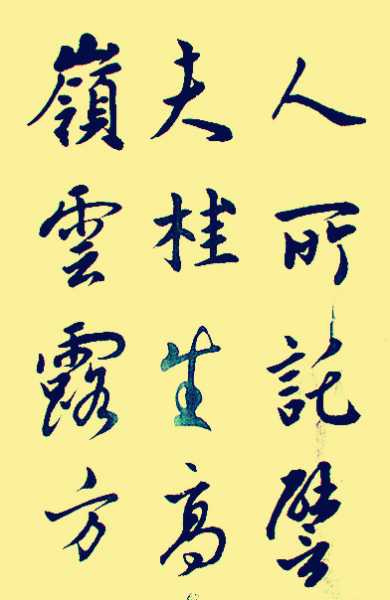 人所託譬
夫桂生高
嶺雲露方